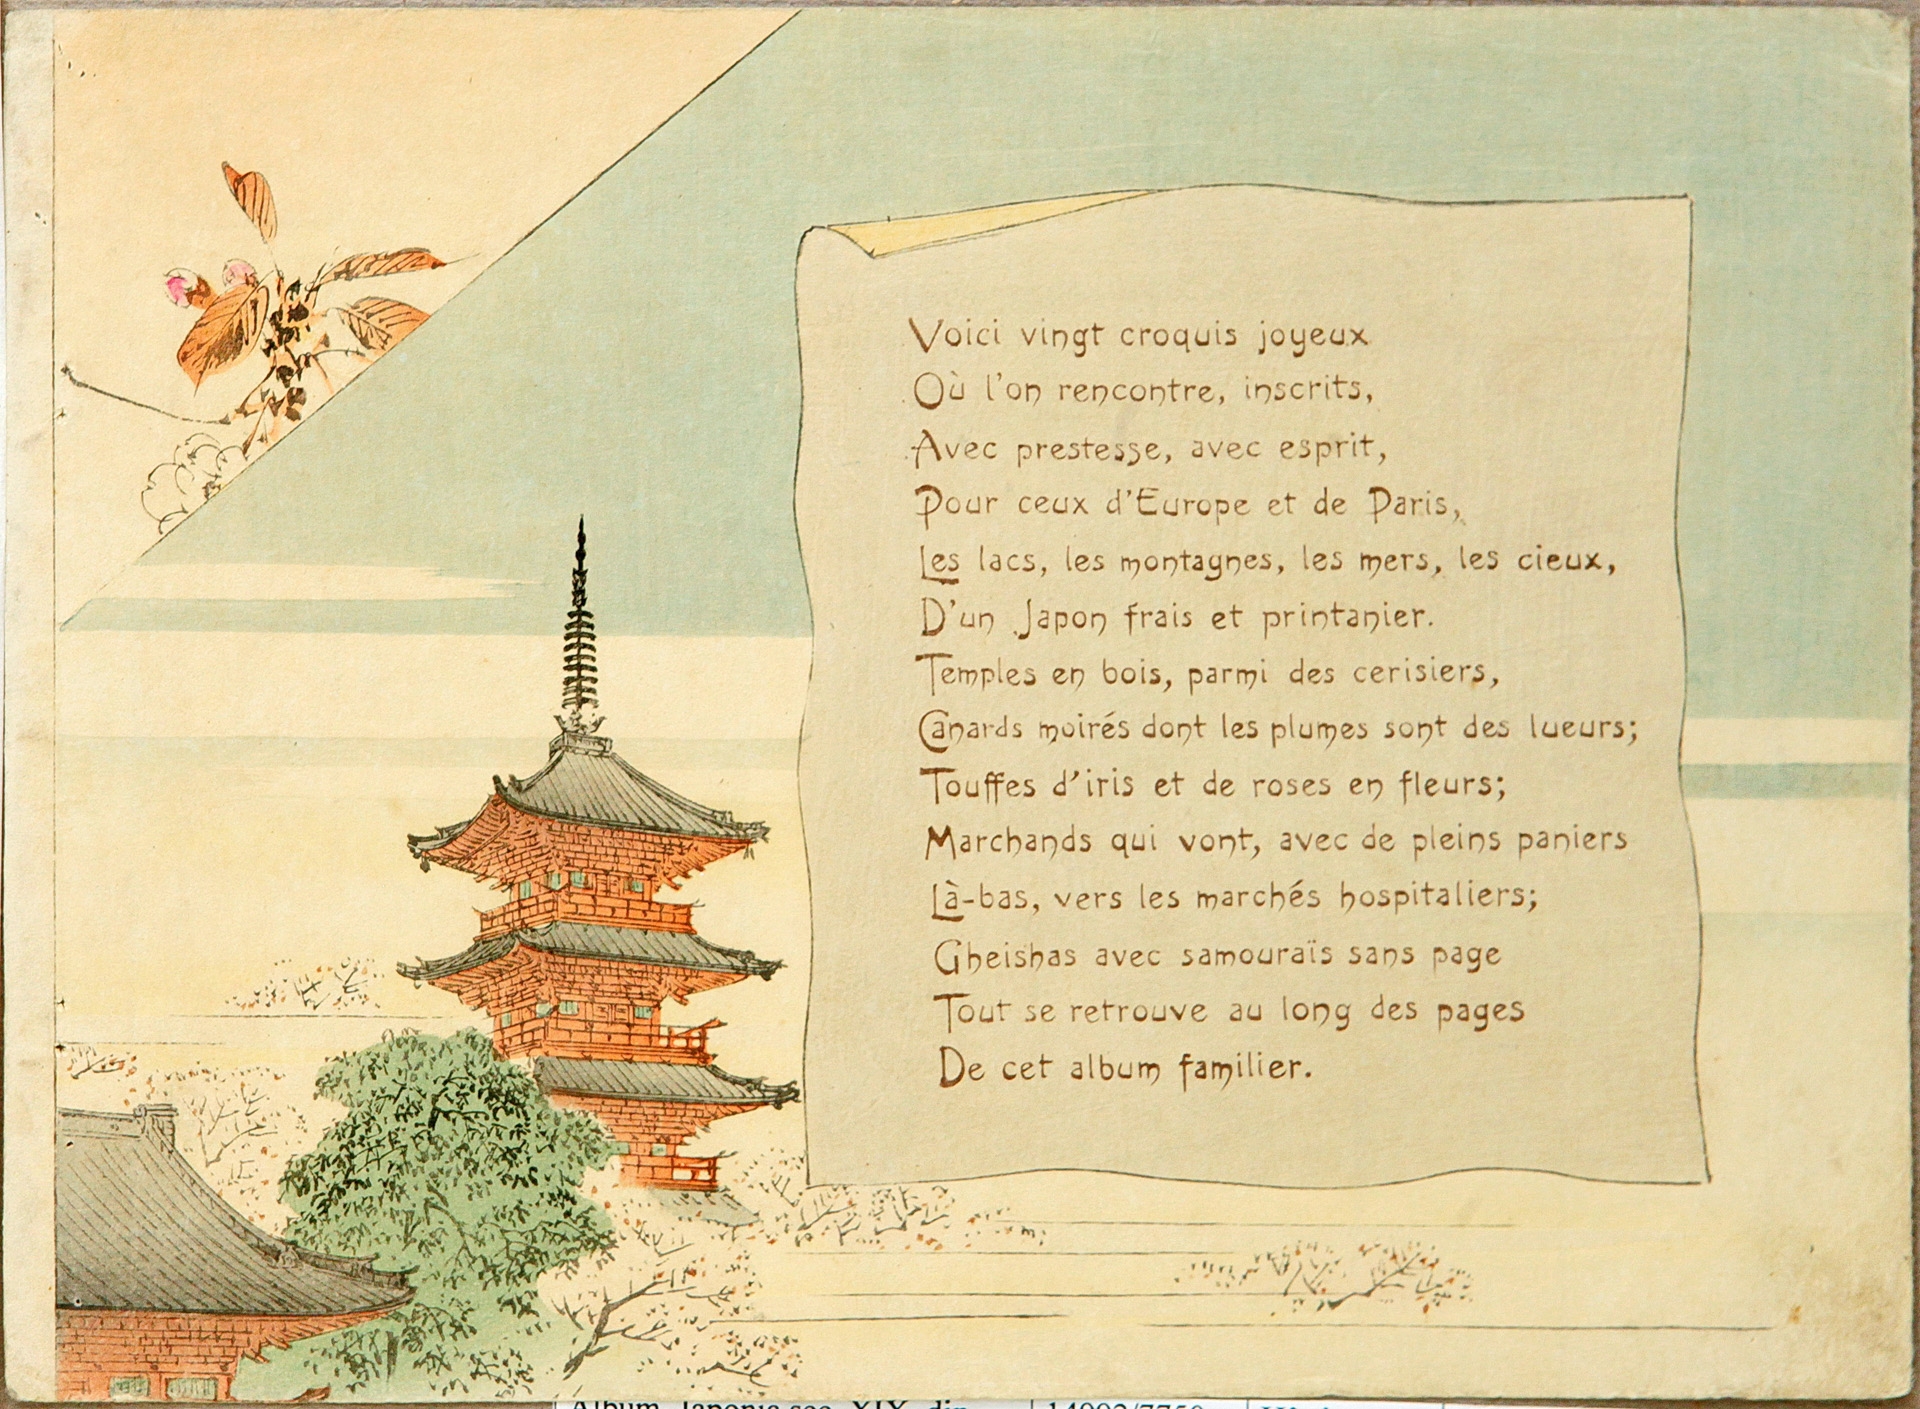 Voici vingt croquis joyeux
Où l'on rencontre, inscrits,
Avec prestesse, avec esprit,
Pour ceux d'Europe et de Paris,
Les lacs, les montagnes, les mers, les cieux,
D'un Japon frais et printanier.
Temples en bois, parmi des cerisiers,
Canards moirés dont les plumes sont des lueurs;
Touffes d'iris et de roses en fleurs;
Marchands qui vont, avec de pleins paniers
Là-bas, vers les marchés hospitaliers;
Gheishas avec samouraïs sans page
Tout se retrouve au long des pages
De cet album familier.
Album Japonia sec. XIX, din